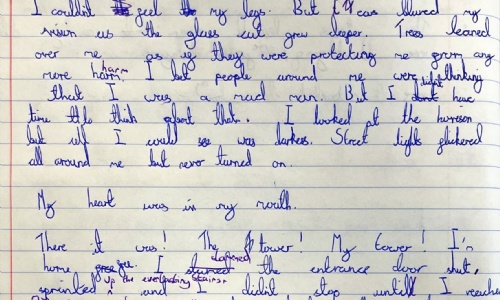 I couldn't feel my legs. But tears blured my
vision as the glass cut grew deeper. Trees leaned
over me as if they were protecting me from any
more harm. I bet people around me were thinking
that I was a mad man. But I didnt have
time to think about that. I looked at the horreson
but all I could see was darkness. Street lights flickered
all around me but never turned on.
My heart was in my mouth.
There it was! The tower! My tower! I'm
home free. I slammed the entrance door shut,
sprinted up the everlasting stairs, and I didnt stop untill I reach